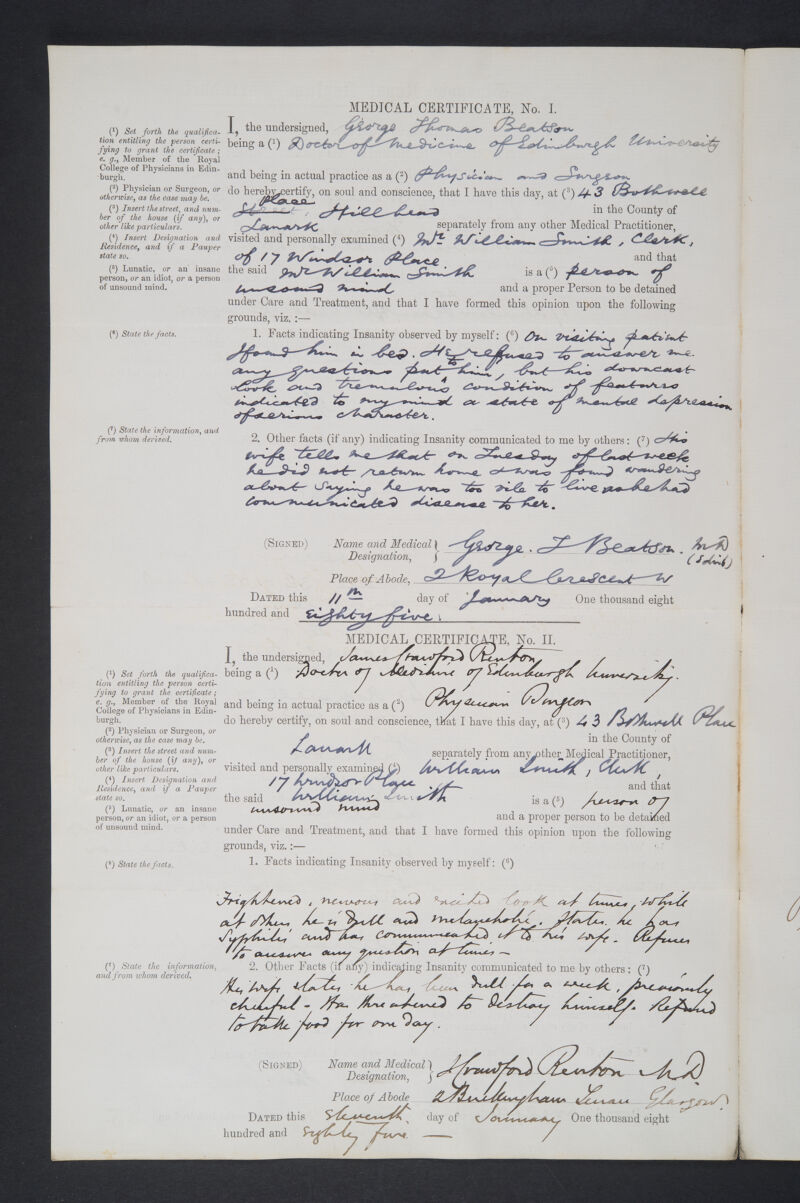 MEDICAL CERTIFICATE, No. I.
(¹) Set forth the qualifica-
tion entitling the person certi-
fying to grant the certificate;
e. g., Member of the Royal
College of Physicians in Edin-
burgh.
(²) Physician or Surgeon, or
otherwise, as the case may be.
(³) Insert the street, and num-
ber of the house (if any), or
other like particulars.
(⁴) Insert Designation and
Residence, and if a Pauper
state so.
(⁵) Lunatic, or an insane
person, or an idiot, or a person
of unsound mind.
I, the undersigned, George Thomas Beatson
being a (¹) Doctor of Medicine of Edinburgh University
and being in actual practice as a (²) Physician and Surgeon
do hereby certify, on soul and conscience, that I have this day, at (³) 43 Bothwell
Place
Street, Hillhead in the County of
Lanark separately from any other Medical Practitioner,
visited and personally examined (⁴) Mr William Smith, Clerk,
of 17 Windsor Place and that
the said Mr William Smith is a (⁵) person of
unsound mind and a proper Person to be detained
under Care and Treatment, and that I have formed this opinion upon the following
grounds, viz. :—
(⁶) State the facts.
1. Facts indicating Insanity observed by myself: (⁶) On visiting patient
I found him in bed. He refused to answer me
any questions put to him, but his downcast
look and tremulous condition of features
indicated to my mind a state of mental depression
of serious character.
(⁷) State the information, and
from whom derived.
2. Other facts (if any) indicating Insanity communicated to me by others: (⁷) His
wife tells me that on Tuesday of last week
he did not return home & was found wandering
about saying he was too vile to live as he had
communicated disease to her.
(SIGNED) Name and Medical
Designation, George. T Beatson. M D
(Edinb)
Place of Abode, 2 Royal Crescent W
DATED this 11th day of January One thousand eight
hundred and Eighty five.
MEDICAL CERTIFICATE, No. II.
(¹) Set forth the qualifica-
tion entitling the person certi-
fying to grant the certificate;
e. g., Member of the Royal
College of Physicians in Edin-
burgh.
(²) Physician or Surgeon, or
otherwise, as the case may be.
(³) Insert the street and num-
ber of the house (if any), or
other like particulars.
(⁴) Insert Designation and
Residence, and if a Pauper
state so.
(⁵) Lunatic, or an insane
person, or an idiot, or a person
of unsound mind.
I, the undersigned, James Crawford Renton
being a (¹) Doctor of Medicine of Edinburgh University.
and being in actual practice as a (²) Physician Surgeon
do hereby certify, on soul and conscience, that I have this day, at (³) 43 Bothwell Place
in the County of
Lanark separately from any other Medical Practitioner,
visited and personally examined (⁴) William Smith, Clerk,
17 Windsor Place and that
the said William Smith is a (⁵) person of
unsound mind and a proper person to be detained
under Care and Treatment, and that I have formed this opinion upon the following
grounds, viz. :—
(⁶) State the facts.
1. Facts indicating Insanity observed by myself: (⁶)
Frightened, nervous and excited look at times, while
at others he is dull and melancholic. States he has
Syphilis and has communicated it to his wife. Refuses
to answer any question at times –
(⁷) State the information,
and from whom derived.
2. Other Facts (if any) indicating Insanity communicated to me by others: (⁷)
His wife states he has been dull for a week, previously
cheerful – Has threatened to destroy himself. Refused
to take food for one day.
(SIGNED) Name and Medical
Designation, J Crawford Renton M.D
Place of Abode 2 Buckingham Terrace Glasgow.
DATED this Eleventh day of January One thousand eight
hundred and Eighty five —